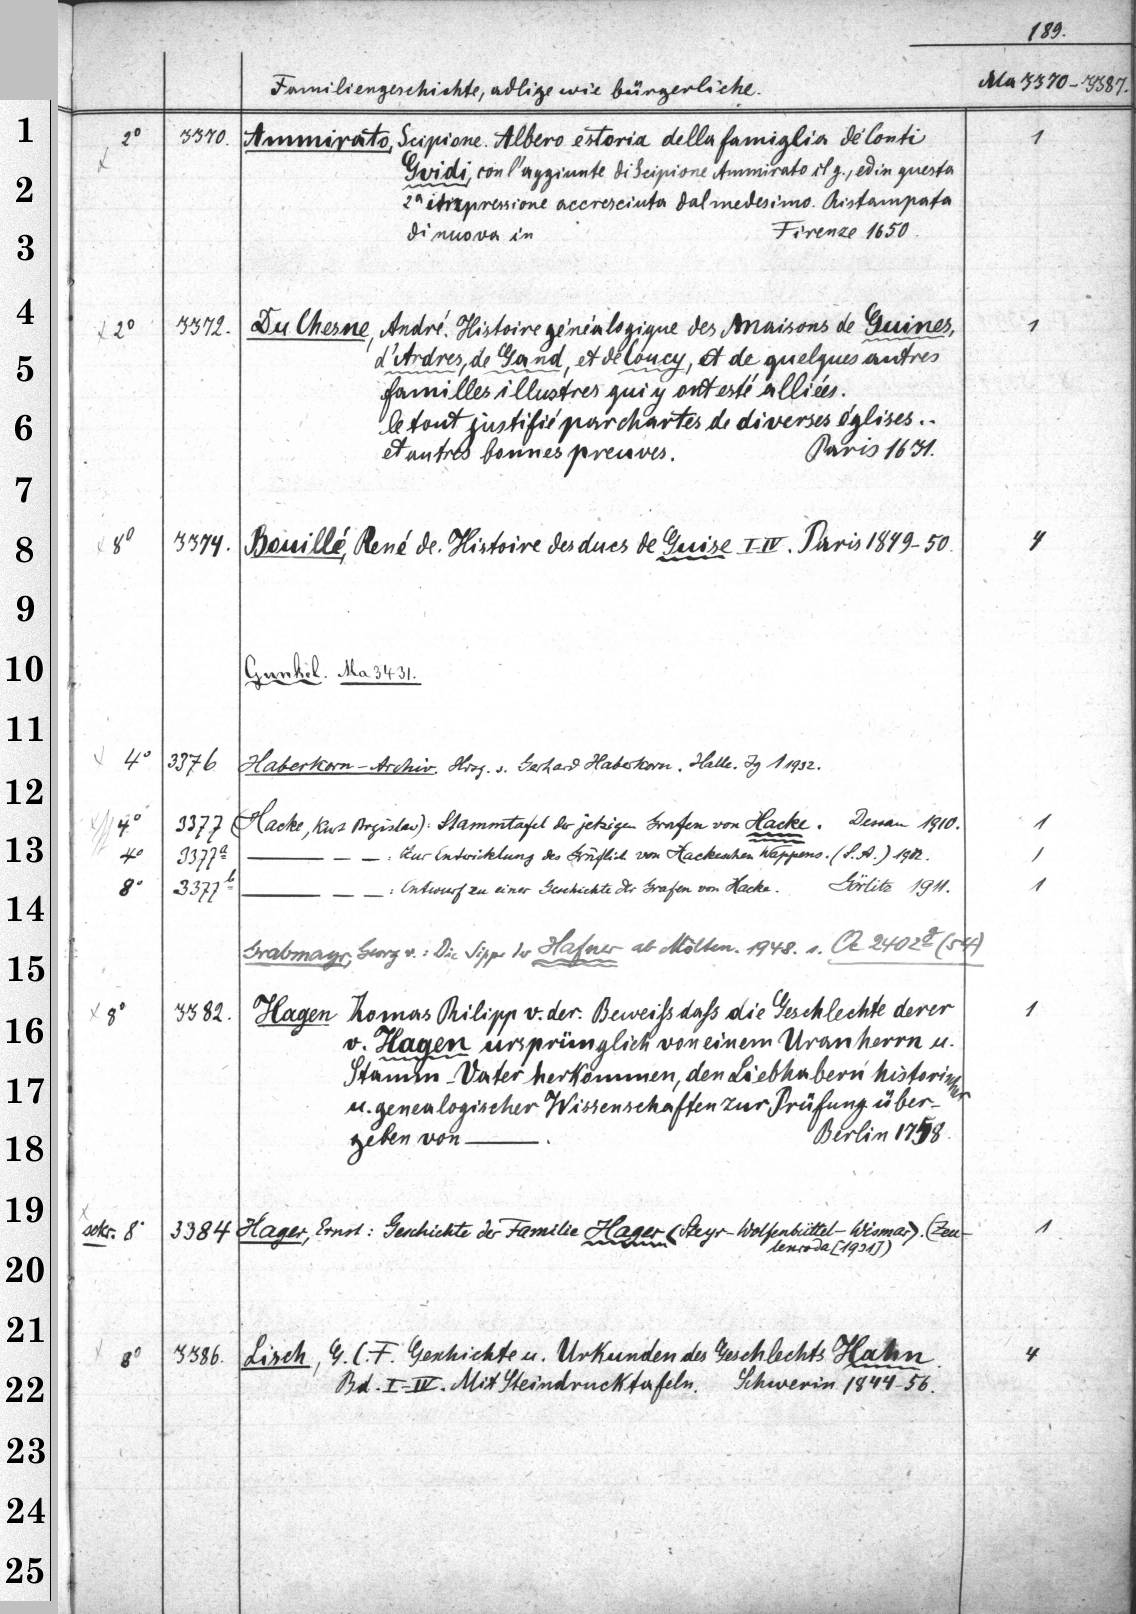 189.
Familiengeschichte, adlige wie bürgerliche. Ma 3370-3387.
1 2° 3370. Ammirato, Scipione. Albero e storia della famiglia de' Conti 1
2 Guidi, con l'aggiunte di Scipione Ammirato il g., ed in questa
2a impressione accresciuta dal medesimo. Ristampata
3 di nuova in Firenze 1650.
4 x 2° 3372. Du Chesne, André. Histoire généalogique des Maisons de Guines, 1
5 d'Ardres, de Gand, et de Coucy, et de quelques autres
familles illustres qui y ont esté alliées.
6 le tout justifié par chartes de diverses églises..
et autres bonnes preuves. Paris 1631.
7
8 x 8° 3374. Bouillé, René de. Histoire des ducs de Guise I-IV. Paris 1849-50. 4
9
10 Gunkel. Ma 3431.
11
x 4° 3376 Haberkorn-Archiv. Hrsg. v. Gerhard Haberkorn. Halle. Jg 1 1932.
12
4° 3377 (Hacke, Kurt Bogislav): Stammtafel der jetzigen Grafen von Hacke. Dessau 1910. 1
13 4° 3377a ——— — — : Zur Entwicklung des Gräflich von Hackeschen Wappens. (S.A.) 1912. 1
8° 3377b ——— — — : Entwurf zu einer Geschichte der Grafen von Hacke. Görlitz 1911. 1
14
Grabmayr, Georg v.: Die Sippe der Hafner ab Mölten. 1948. s. (54)
15
x 8° 3382. Hagen Thomas Philipp v. der. Beweiss dass die Geschlechte derer 1
16 v. Hagen ursprünglich von einem Uranherrn u.
17 Stamm-Vater herkommen, den Liebhabern historischer
u. genealogischer Wissenschaften zur Prüfung über-
18 geben von ———. Berlin 1758.
19 x
sekr. 8° 3384 Hager, Ernst: Geschichte der Familie Hager (Steyr-Wolfenbüttel-Wismar). (Zeu- 1
lenroda [1931])
20
21
8° 3386. Lisch, G. C. F. Geschichte u. Urkunden des Geschlechts Hahn. 4
22 Bd. I-IV. Mit Steindrucktafeln. Schwerin 1844-56.
23
24
25